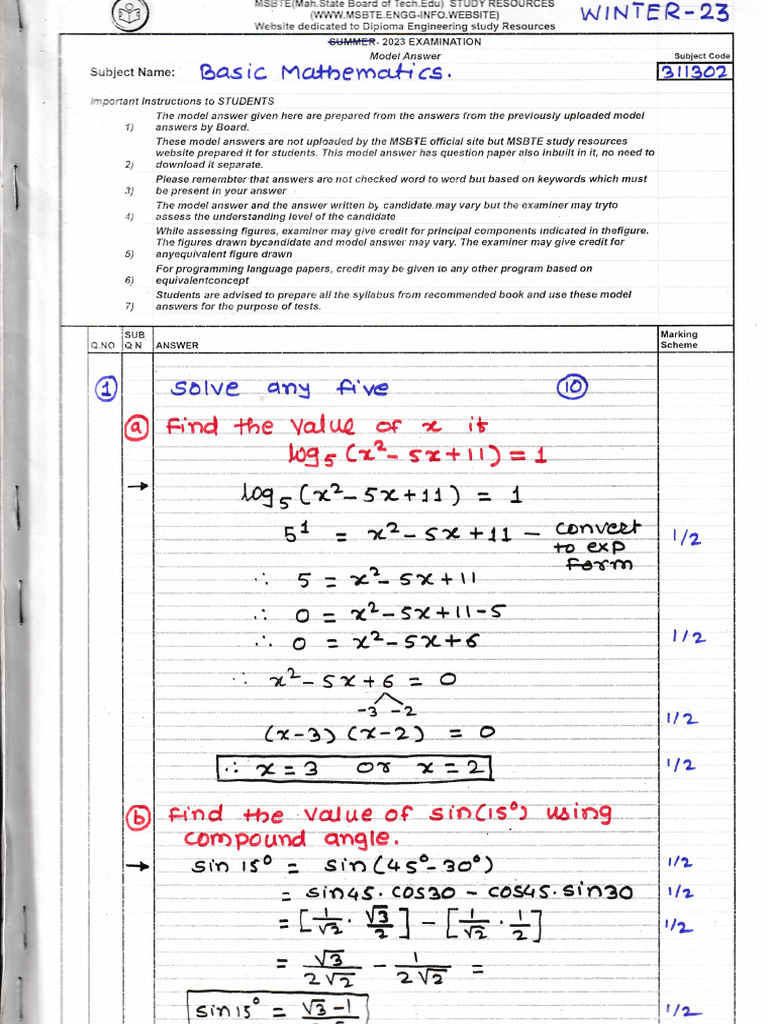 MSBTE(Mah.State Board of Tech.Edu) STUDY RESOURCES
(WWW.MSBTE.ENGG-INFO.WEBSITE)
Website dedicated to Diploma Engineering study Resources
WINTER-23
SUMMER- 2023 EXAMINATION
Model Answer
Subject Code
Subject Name: Basic Mathematics.
311302
Important Instructions to STUDENTS
The model answer given here are prepared from the answers from the previously uploaded model
1) answers by Board.
These model answers are not uploaded by the MSBTE official site but MSBTE study resources
website prepared it for students. This model answer has question paper also inbuilt in it, no need to
2) download it separate.
Please remembter that answers are not checked word to word but based on keywords which must
3) be present in your answer
The model answer and the answer written by candidate may vary but the examiner may tryto
4) assess the understanding level of the candidate
While assessing figures, examiner may give credit for principal components indicated in thefigure.
The figures drawn bycandidate and model answer may vary. The examiner may give credit for
5) anyequivalent figure drawn
For programming language papers, credit may be given to any other program based on
6) equivalentconcept
Students are advised to prepare all the syllabus from recommended book and use these model
7) answers for the purpose of tests.
Q.NO
SUB
Q N
ANSWER
Marking
Scheme
1 Solve any five 10
a Find the value of x if
log₅(x²-5x+11)=1
→ log₅(x²-5x+11) = 1
5¹ = x²-5x+11 - convert
to exp
form
1/2
∴ 5 = x²-5x+11
∴ 0 = x²-5x+11-5
∴ 0 = x²-5x+6 1/2
∴ x²-5x+6 = 0
-3 -2
(x-3) (x-2) = 0 1/2
∴ x=3 or x=2 1/2
b Find the value of sin(15°) using
compound angle.
→ sin 15° = sin(45°-30°) 1/2
= sin45.cos30 - cos45.sin30 1/2
= [1/√2 · √3/2] - [1/√2 · 1/2] 1/2
= √3/2√2 - 1/2√2 =
sin 15° = √3-1 1/2